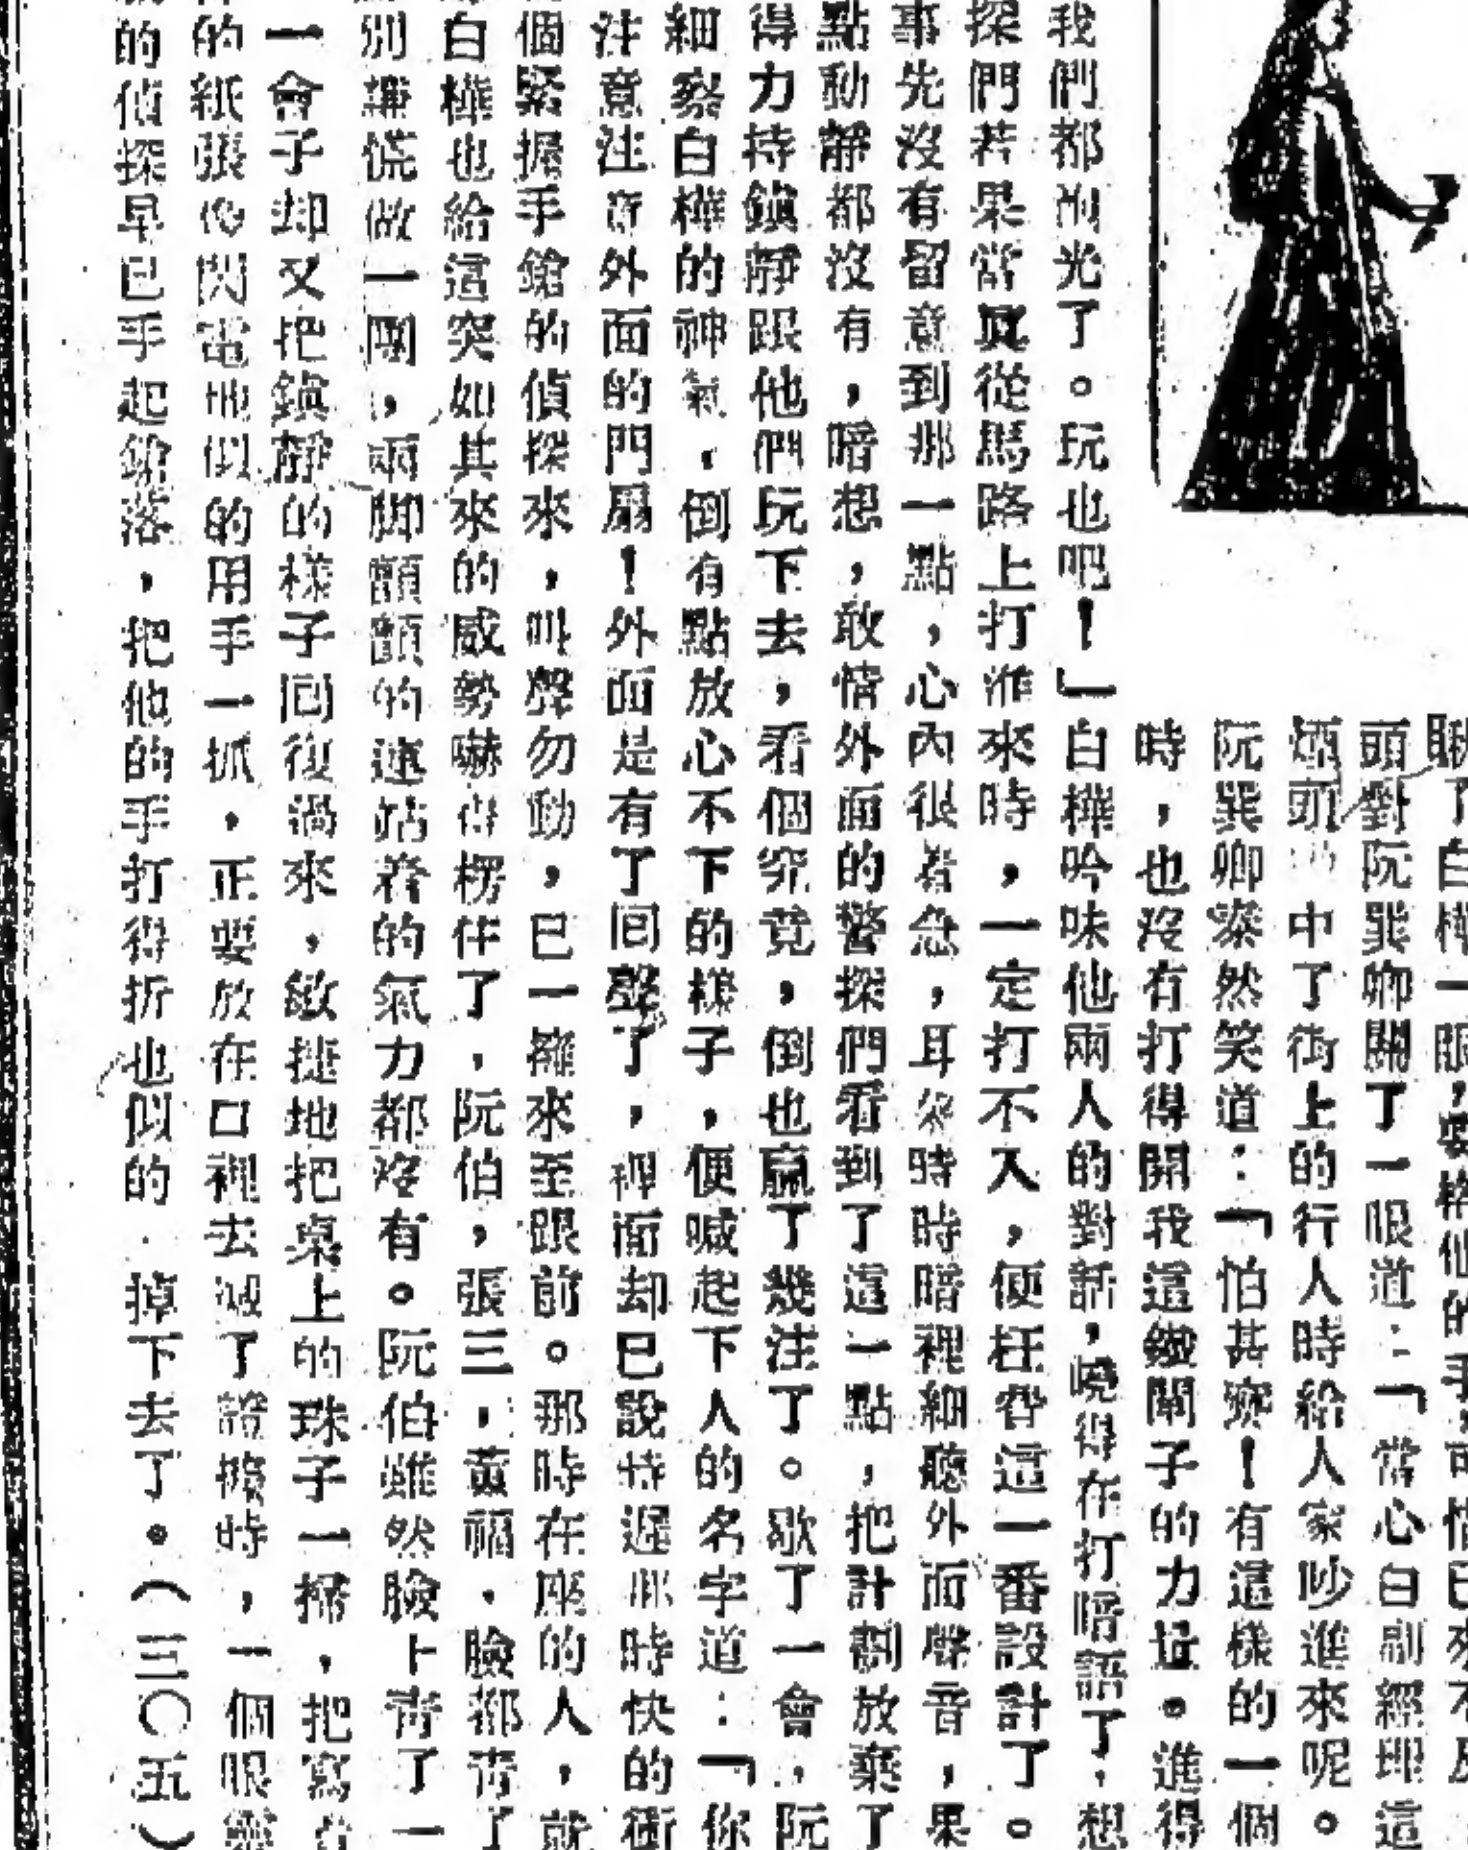 瞅了白樺一眼，要搶他的手，可惜已來不及
頭對阮巽卿關了一眼道：「當心白副經理這
煙頭 中了街上的行人時給人家吵進來呢。
阮巽卿粲然笑道：「怕甚麼！有這樣的一個
時，也沒有打得開我這鐵閘子的力量。進得
我們都 光了。玩也吧！」白樺吟味他兩人的對話，曉得在打暗語了，想
探們若果當眞從馬路上打進來時，一定打不入，便枉費這一番設計了。
事先沒有留意到那一點，心內很着急，耳 時時暗裡細聽外面聲音，果
點動靜都沒有，暗想，敢情外面的警探們看到了這一點，把計劃放棄了
得力持鎮靜跟他們玩下去，看個究竟，倒也贏了幾注了。歇了一會，阮
細察白樺的神氣，倒有點放心不下的樣子，便喊起下人的名字道：「你
注意注意外面的門扇！外面是有了回聲了，裡面却已說時遲那時快的衝
個緊握手鎗的偵探來，叫聲勿動，已一擁來至跟前。那時在座的人，就
白樺也給這突如其來的威勢嚇得楞住了，阮伯，張三，黃福，臉都青了
別 慌做一團，兩脚顫顫的連站着的氣力都沒有。阮伯雖然臉上青了一
一會子却又把鎮靜的樣子回復過來，敏捷地把桌上的珠子一掃，把寫
的紙張像閃電地似的用手一抓，正要放在口裡去 了證據時，一個眼
的偵探早已手起鎗落，把他的手打得折也似的，掉下去了。（三〇五）